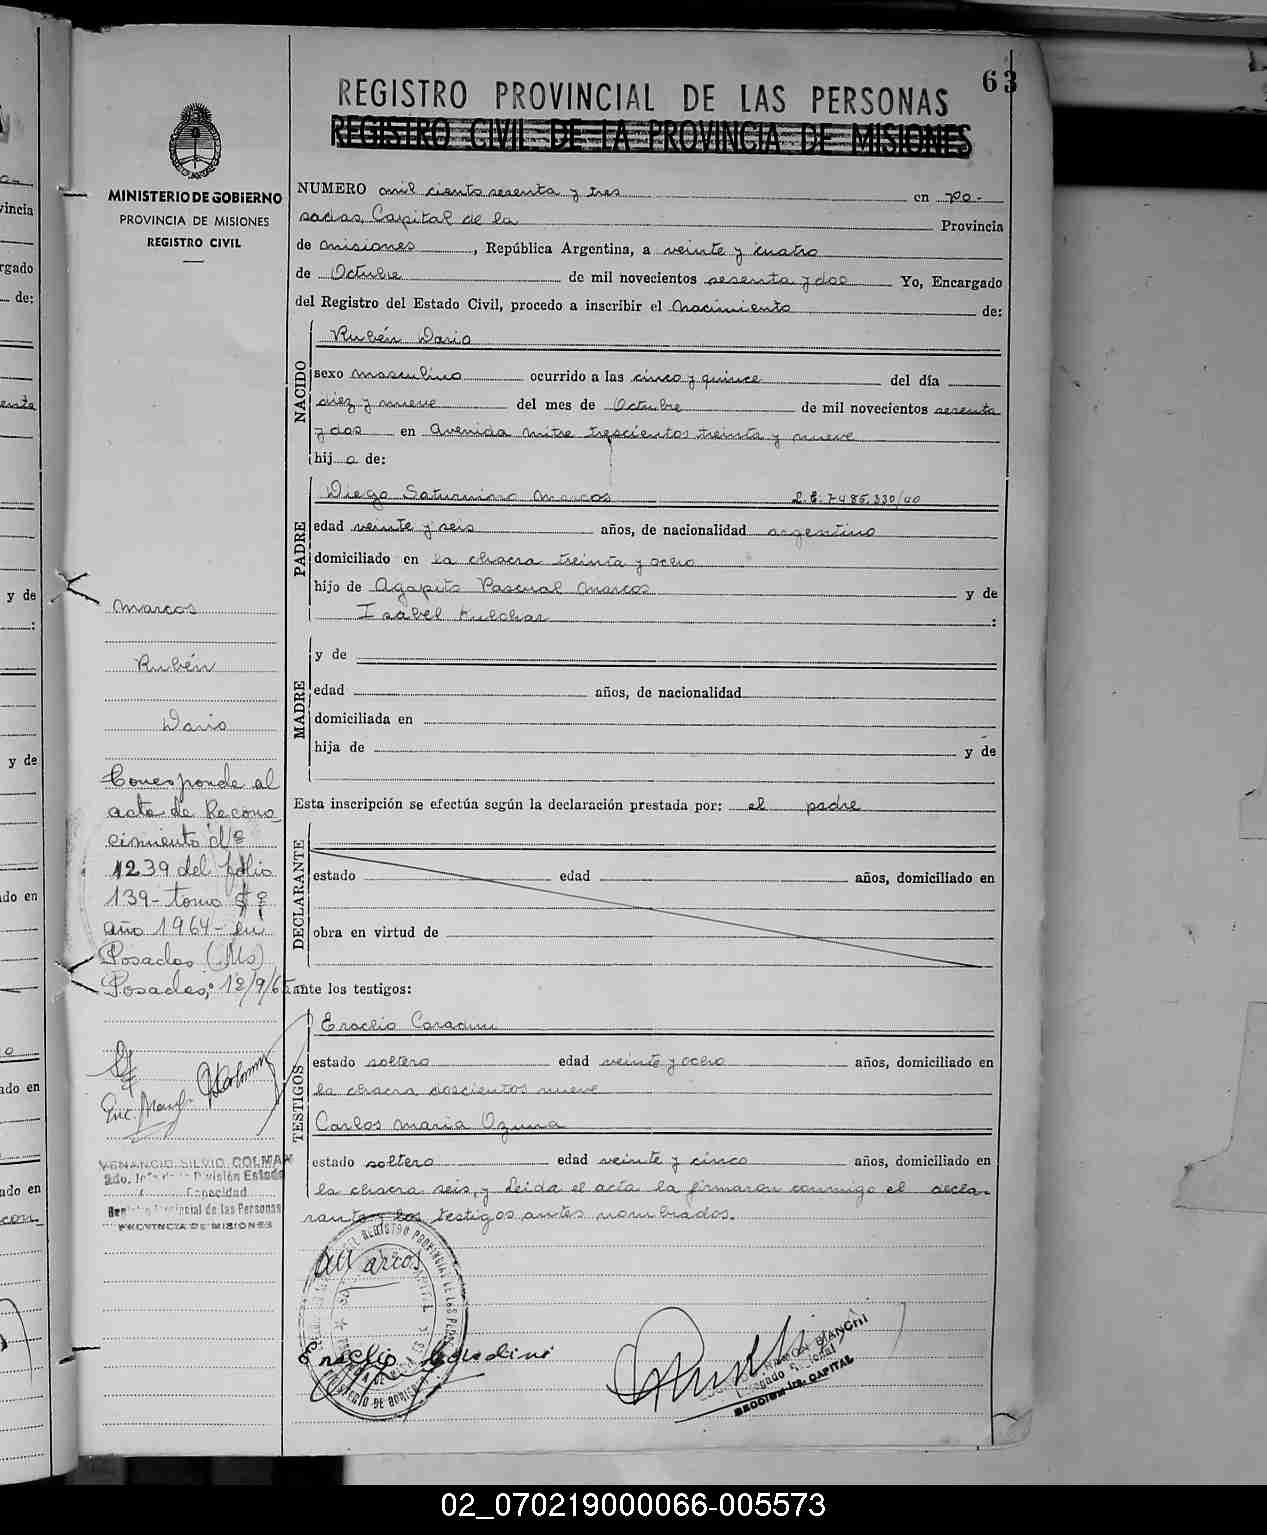 63
REGISTRO PROVINCIAL DE LAS PERSONAS
REGISTRO CIVIL DE LA PROVINCIA DE MISIONES
MINISTERIO DE GOBIERNO
PROVINCIA DE MISIONES
REGISTRO CIVIL
NUMERO mil ciento sesenta y tres en Po-
sadas, Capital de la Provincia
de Misiones, República Argentina, a veinte y cuatro
de Octubre de mil novecientos sesenta y dos Yo, Encargado
del Registro del Estado Civil, procedo a inscribir el Nacimiento de:
NACIDO
Rubén Dario
sexo masculino ocurrido a las cinco y quince del día
diez y nueve del mes de Octubre de mil novecientos sesenta
y dos en Avenida Mitre trescientos treinta y nueve
hijo de:
PADRE
Diego Saturnino Marcos L.E. 7485.330/40
edad veinte y seis años, de nacionalidad argentino
domiciliado en la chacra treinta y ocho
hijo de Agapito Pascual Marcos y de
Isabel :
MADRE
y de
edad años, de nacionalidad
domiciliada en
hija de y de
Esta inscripción se efectúa según la declaración prestada por: el padre
DECLARANTE
estado edad años, domiciliado en
obra en virtud de
ante los testigos:
TESTIGOS
Eraclio Coradini
estado soltero edad veinte y ocho años, domiciliado en
la chacra doscientos nueve
Carlos Maria Ozuna
estado soltero edad veinte y cinco años, domiciliado en
la chacra seis, y leida el acta la firmaron conmigo el decla-
rante y los testigos antes nombrados.
Marcos
Eraclio Coradini
BIANCHI
SECCION 1ra. CAPITAL
Marcos
Rubén
Dario
Corresponde al
acta de Recono
cimiento Nº
1239 del folio
139- tomo
año 1964- en
Posadas (Ms)
Posadas, 
VENANCIO SILVIO COLMAN
División Estado
Capacidad
Provincial de las Personas
PROVINCIA DE MISIONES
vincia
rgado
de:
y de
y de
ado en
ado en
ado en
02_070219000066-005573